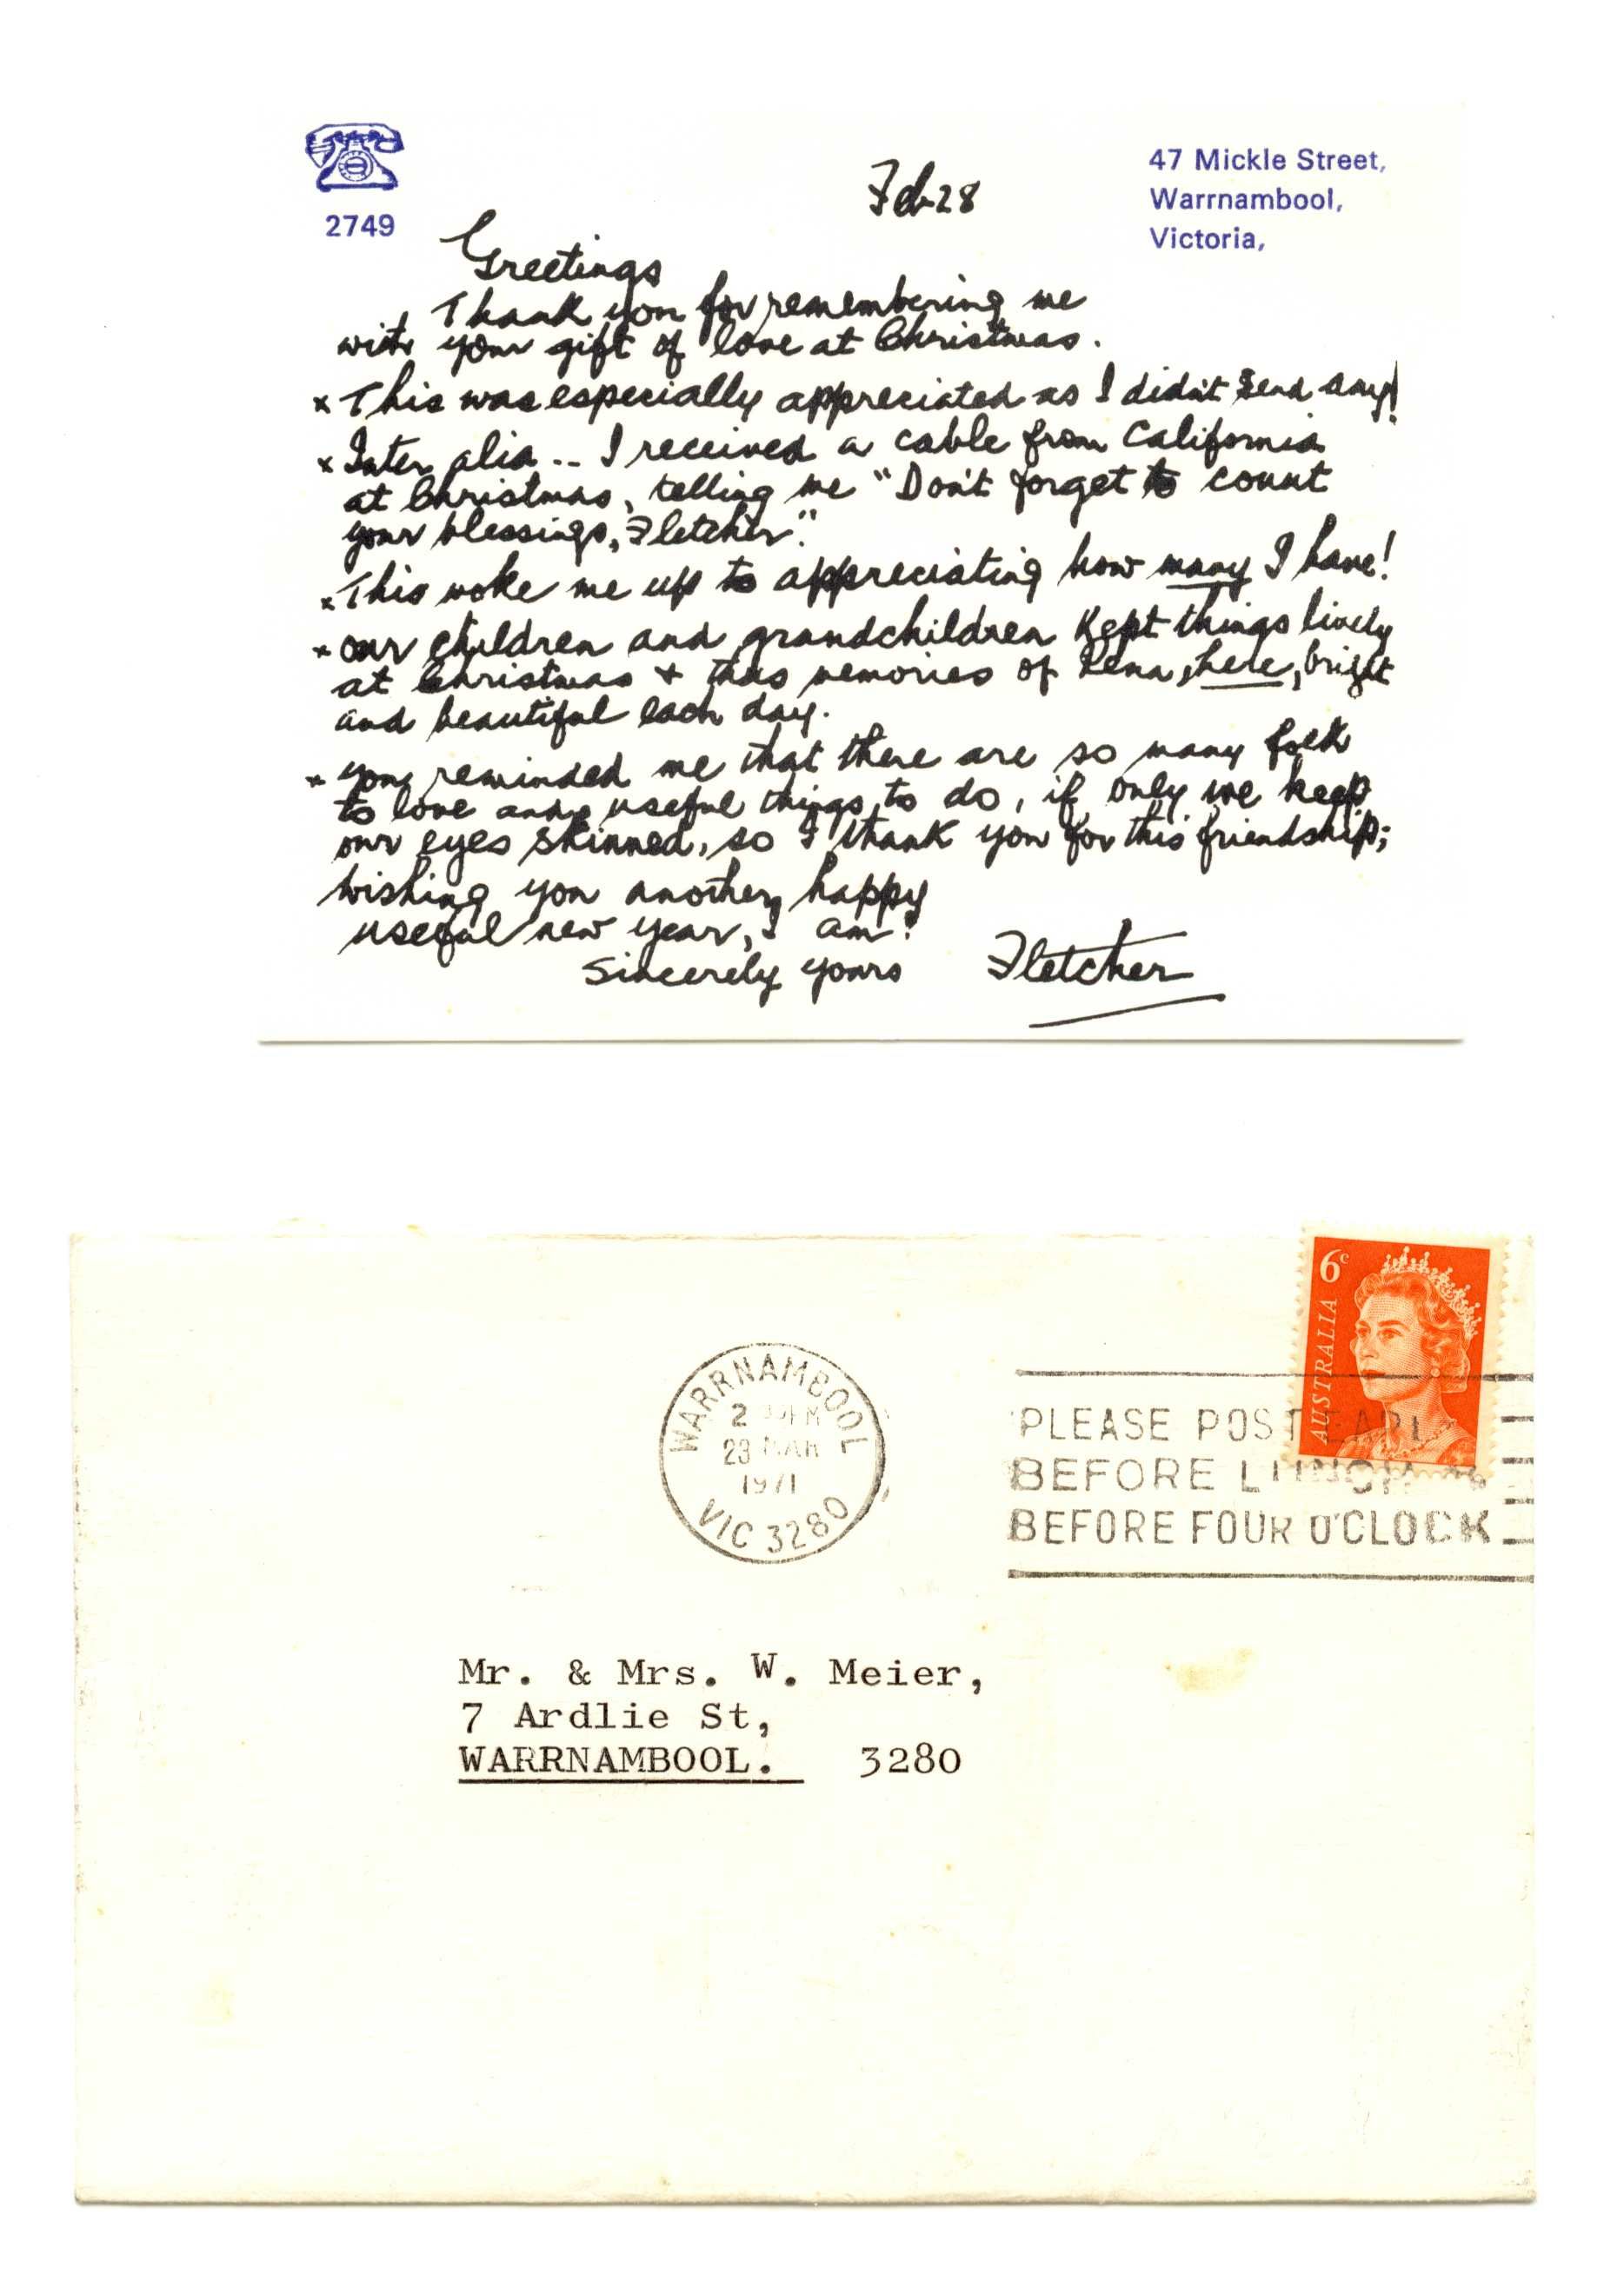 2749
Feb 28
47 Mickle Street,
Warrnambool,
Victoria,
Greetings
Thank you for remembering me
with your gift of love at Christmas.
x This was especially appreciated as I didn't send any!
x Inter alia .. I received a cable from California
at Christmas, telling me "Don't forget to count
your blessings, Fletcher."
x This woke me up to appreciating how many I have!
x Our children and grandchildren kept things lively
at Christmas + thus memories of Rena, here, bright
and beautiful each day.
x You reminded me that there are so many folk
to love and useful things to do, if only we keep
our eyes skinned, so I thank you for this friendship;
wishing you another happy
useful new year, I am:
Sincerely yours Fletcher
6c
AUSTRALIA
WARRNAMBOOL
2 PM
23 MAR
1971
VIC 3280
PLEASE POST
BEFORE LUNCH
BEFORE FOUR O'CLOCK
Mr. & Mrs. W. Meier,
7 Ardlie St,
WARRNAMBOOL. 3280